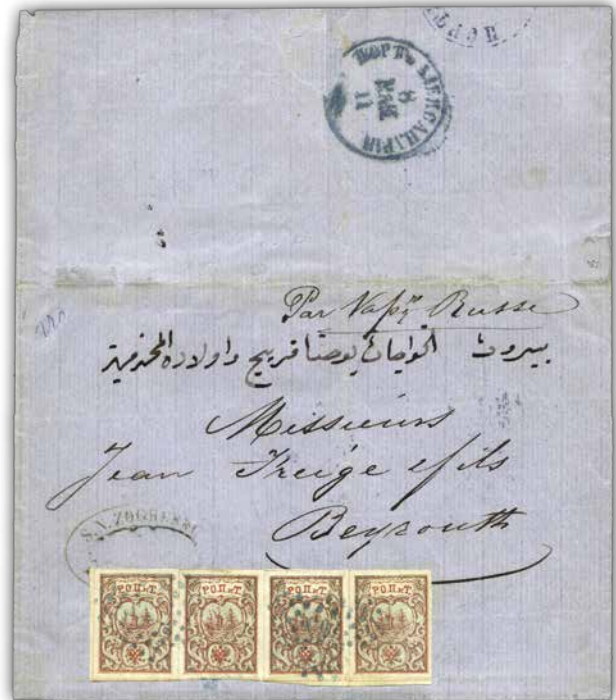 ПОРТЪ
ПОРТЪ АЛЕКСАНДРІИ
8
МАЯ
11
Par Vapr Russe
بيروت الخواجات يوحنا فريج واولاده المحترمين
Messieurs
Jean Freige & fils
Beyrouth
РОПиТ. РОПиТ. РОПиТ. РОПиТ.